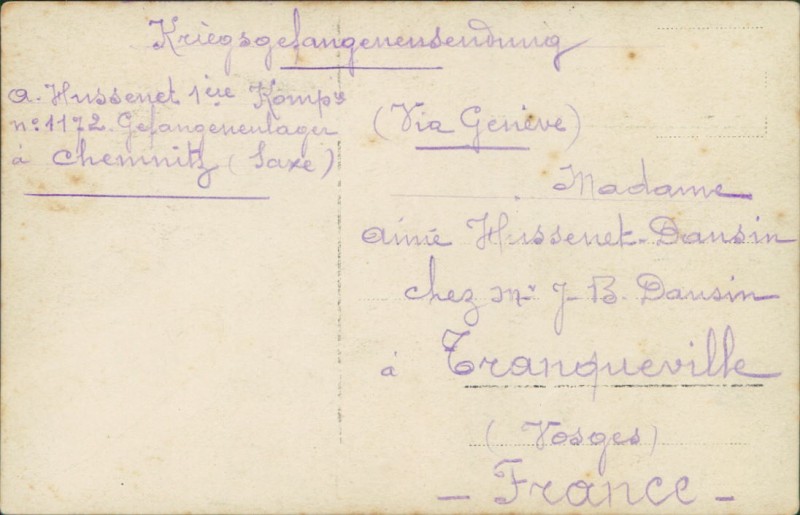 Kriegsgefangenensendung
A. Hussenet 1ère Kompie
n° 1172. Gefangenenlager
à Chemnitz (Saxe)
(Via Genève)
Madame
Aimé Hussenet-Dausin
chez Mr J-B. Dausin
à Tranqueville
(Vosges)
- France -